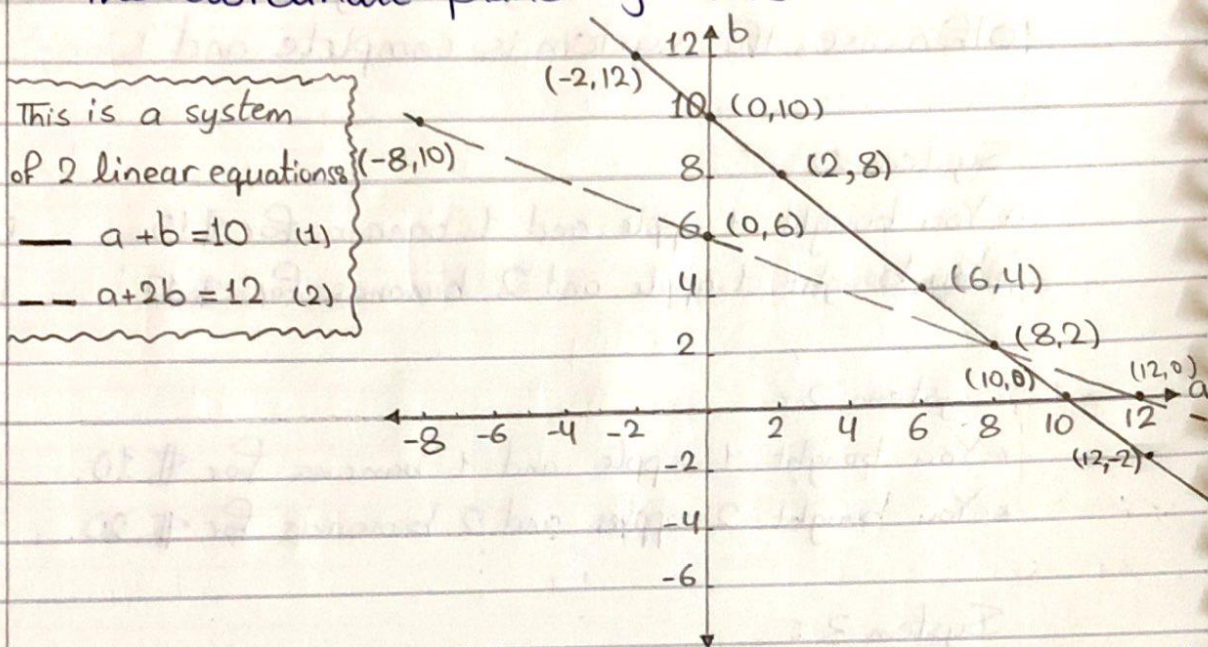 The coordinate plane
This is a system
of 2 linear equations:
— a+b=10 (1)
-- a+2b=12 (2)
b
12
(-2,12)
10 (0,10)
(-8,10)
8 (2,8)
6 (0,6)
4 (6,4)
2 (8,2)
(10,0) (12,0)
a
-8 -6 -4 -2 2 4 6 8 10 12
-2 (12,-2)
-4
-6